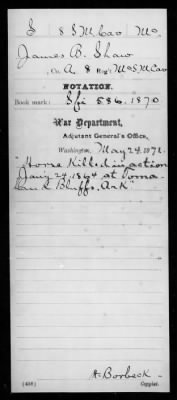 S 8 S M Cav Mo.
James B. Shaw
, Co. A, 8 Reg't Mo S M Cav
NOTATION.
Book mark: 586. 1870
War Department,
Adjutant General's Office,
Washington, May 24, 1872.
"Horse Killed in action
Jan'y 24, 1864 at Toma-
Bluffs, Ark"
A. Borbeck
(436) Copyist.